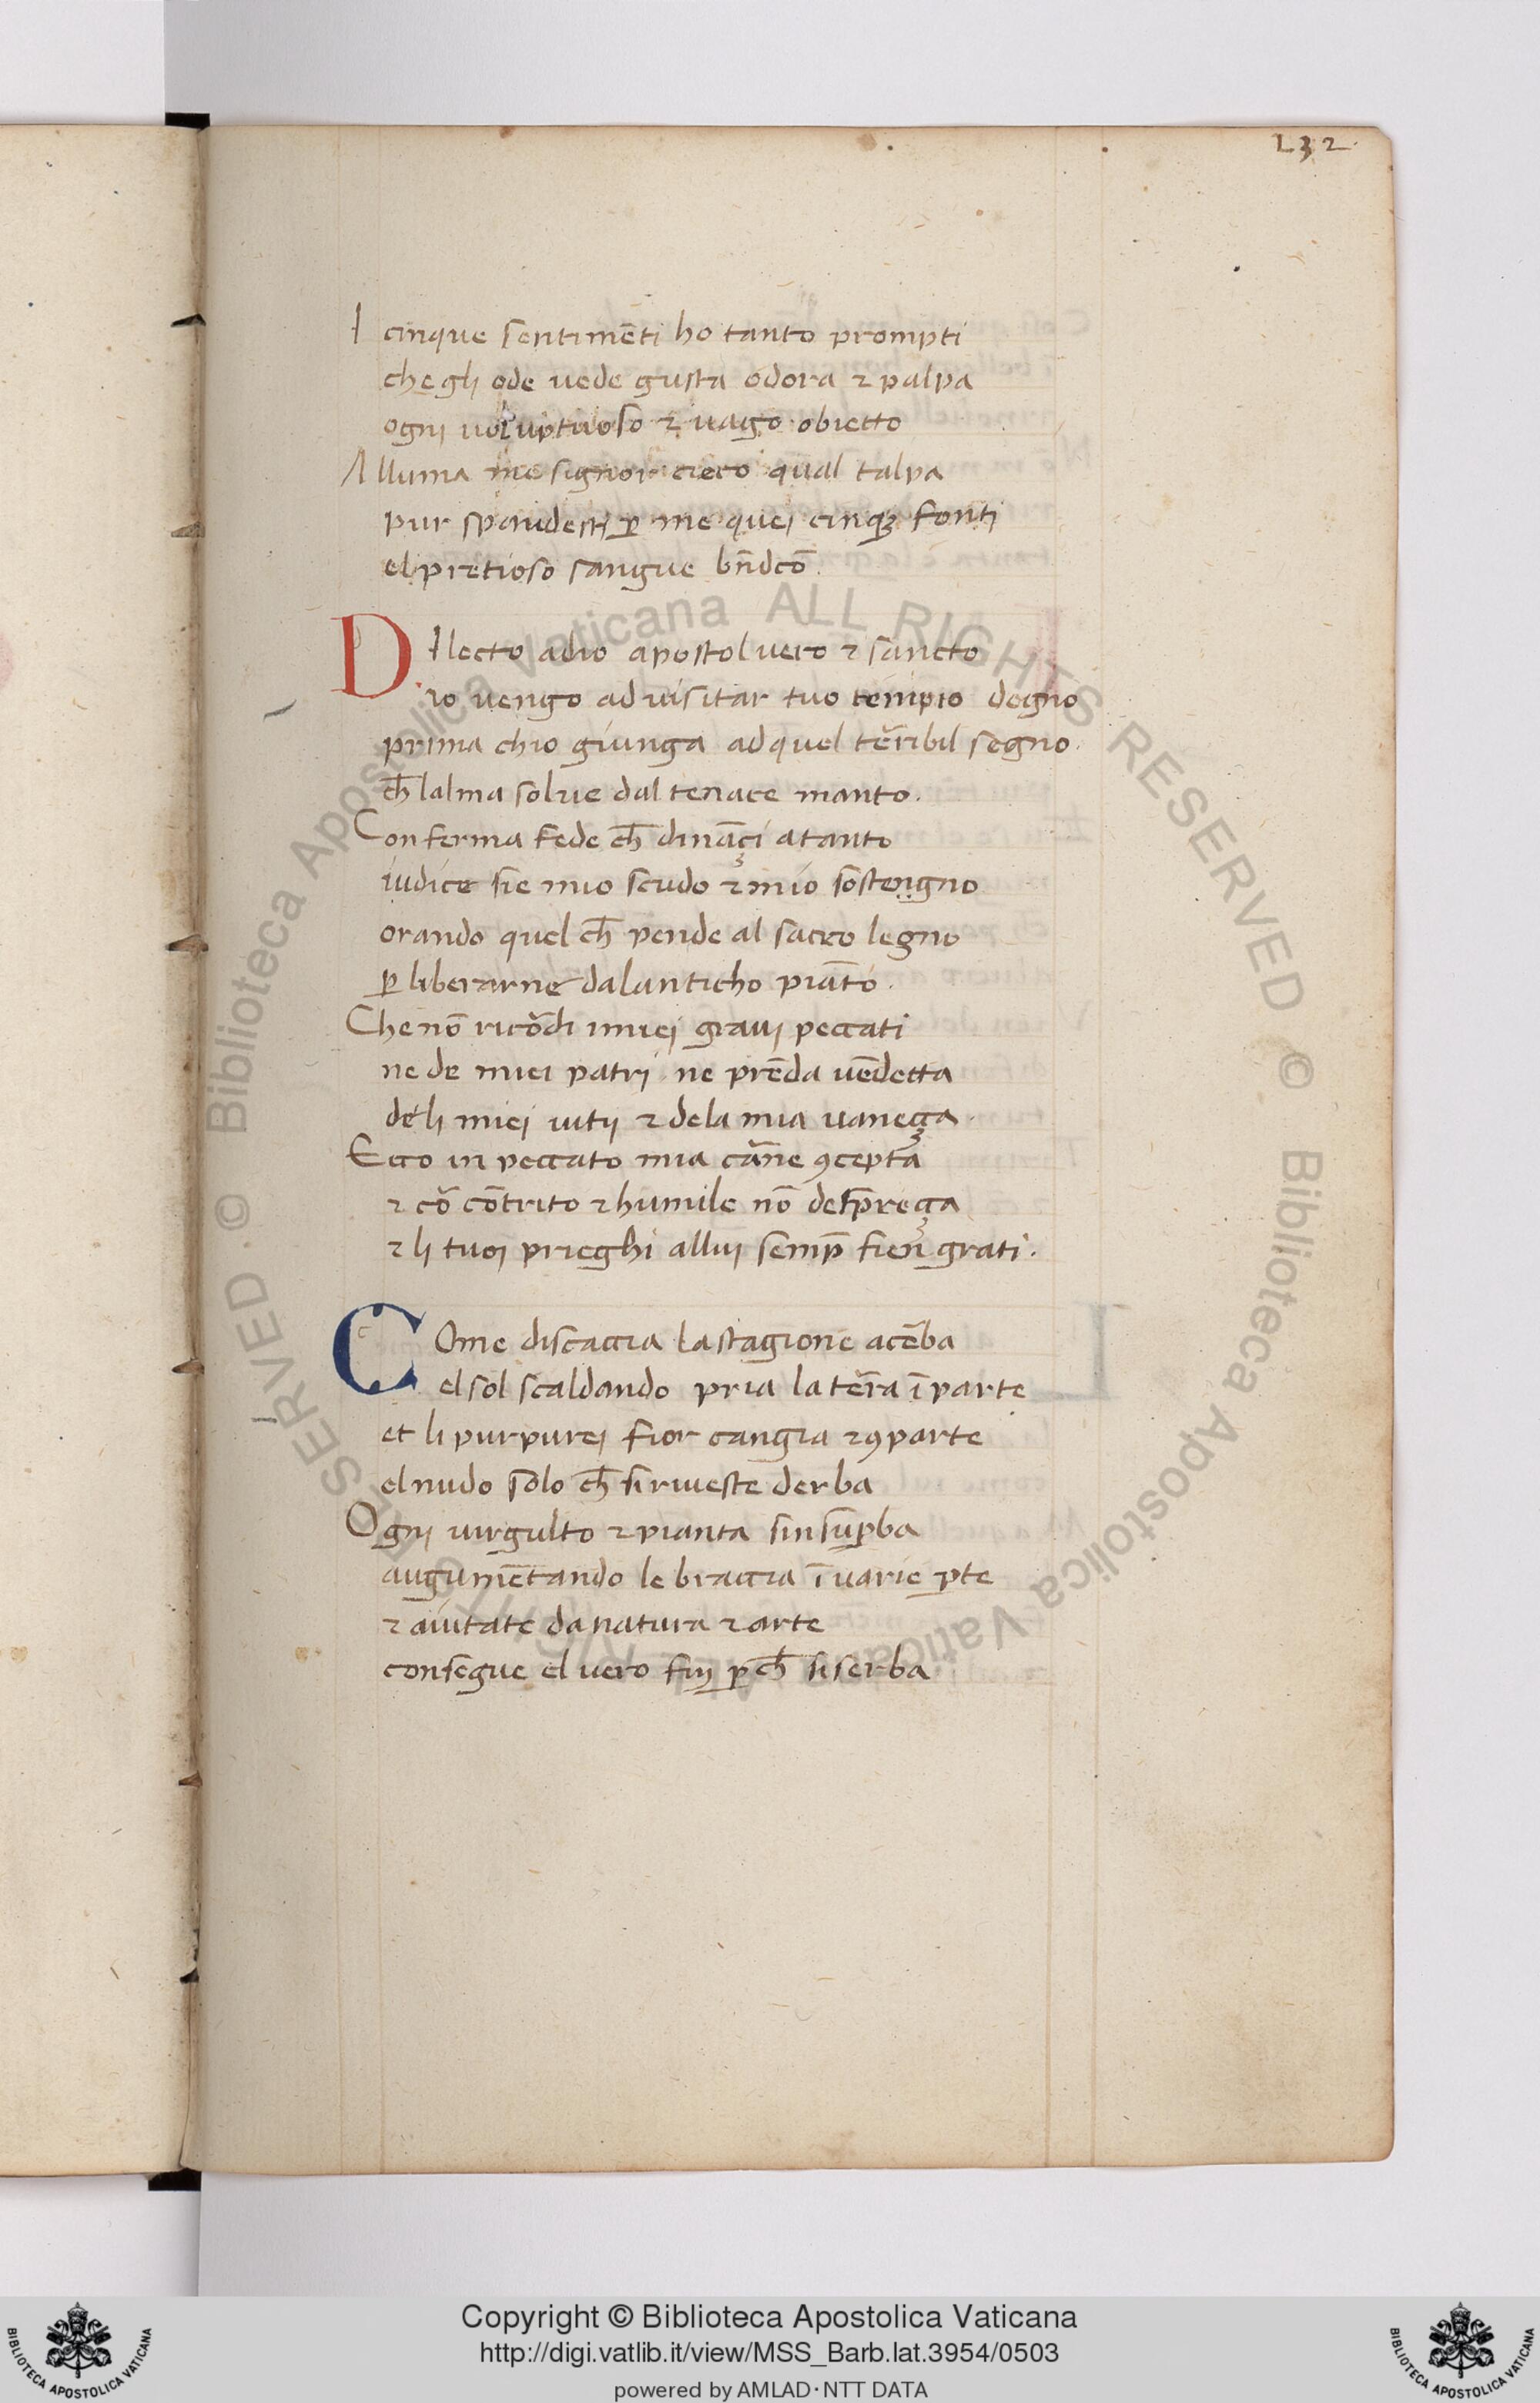 232
I cinque sentimēti ho tanto prompti
che gli ode uede gusta odora ⁊ palpa
ogni uoluptuoso ⁊ uago obietto
Alluma me signor cieco qual talpa
pur spandesti ꝑ me quei cinqꝫ fonti
el pretioso sangue bn̄dcō.
Dilecto adio apostol uero ⁊ sancto
io uengo ad uisitar tuo tempio degno
prima chio giunga ad quel ter̄ibil segno.
ch̄ lalma solue dal tenace manto.
Conferma fede ch̄ dināçi atanto
iudice sie mio scudo ⁊ mio sostengno
orando quel ch̄ pende al sacro legno
ꝑ liberarne dalanticho piāto.
Che nō ricōdi imiei graui peccati
ne de miei patri ne prēda uēdetta
deli miei uitij ⁊ dela mia uaneça.
Ecco in peccato mia car̄ne ꝯcepta
⁊ cō cōtrito ⁊ humile nō desp̄reça
⁊ li tuoi prieghi allui semp̄ fien grati.
Come discaccia la stagione acēba
el sol scaldando pria la ter̄a ī parte
et li purpurei fior cangia ⁊ ꝯparte
el nudo solo ch̄ si riueste derba
Ogni uirgulto ⁊ pianta sinsuꝑba
augumētando le braccia ī uarie ꝑte
⁊ aiutate da natura ⁊ arte
consegue el uero fin ꝑch̄ si serba
© Biblioteca Apostolica Vaticana ALL RIGHTS RESERVED © Biblioteca Apostolica Vaticana ALL RIGHTS RESERVED
Copyright © Biblioteca Apostolica Vaticana
http://digi.vatlib.it/view/MSS_Barb.lat.3954/0503
powered by AMLAD·NTT DATA
BIBLIOTECA APOSTOLICA VATICANA
BIBLIOTECA APOSTOLICA VATICANA